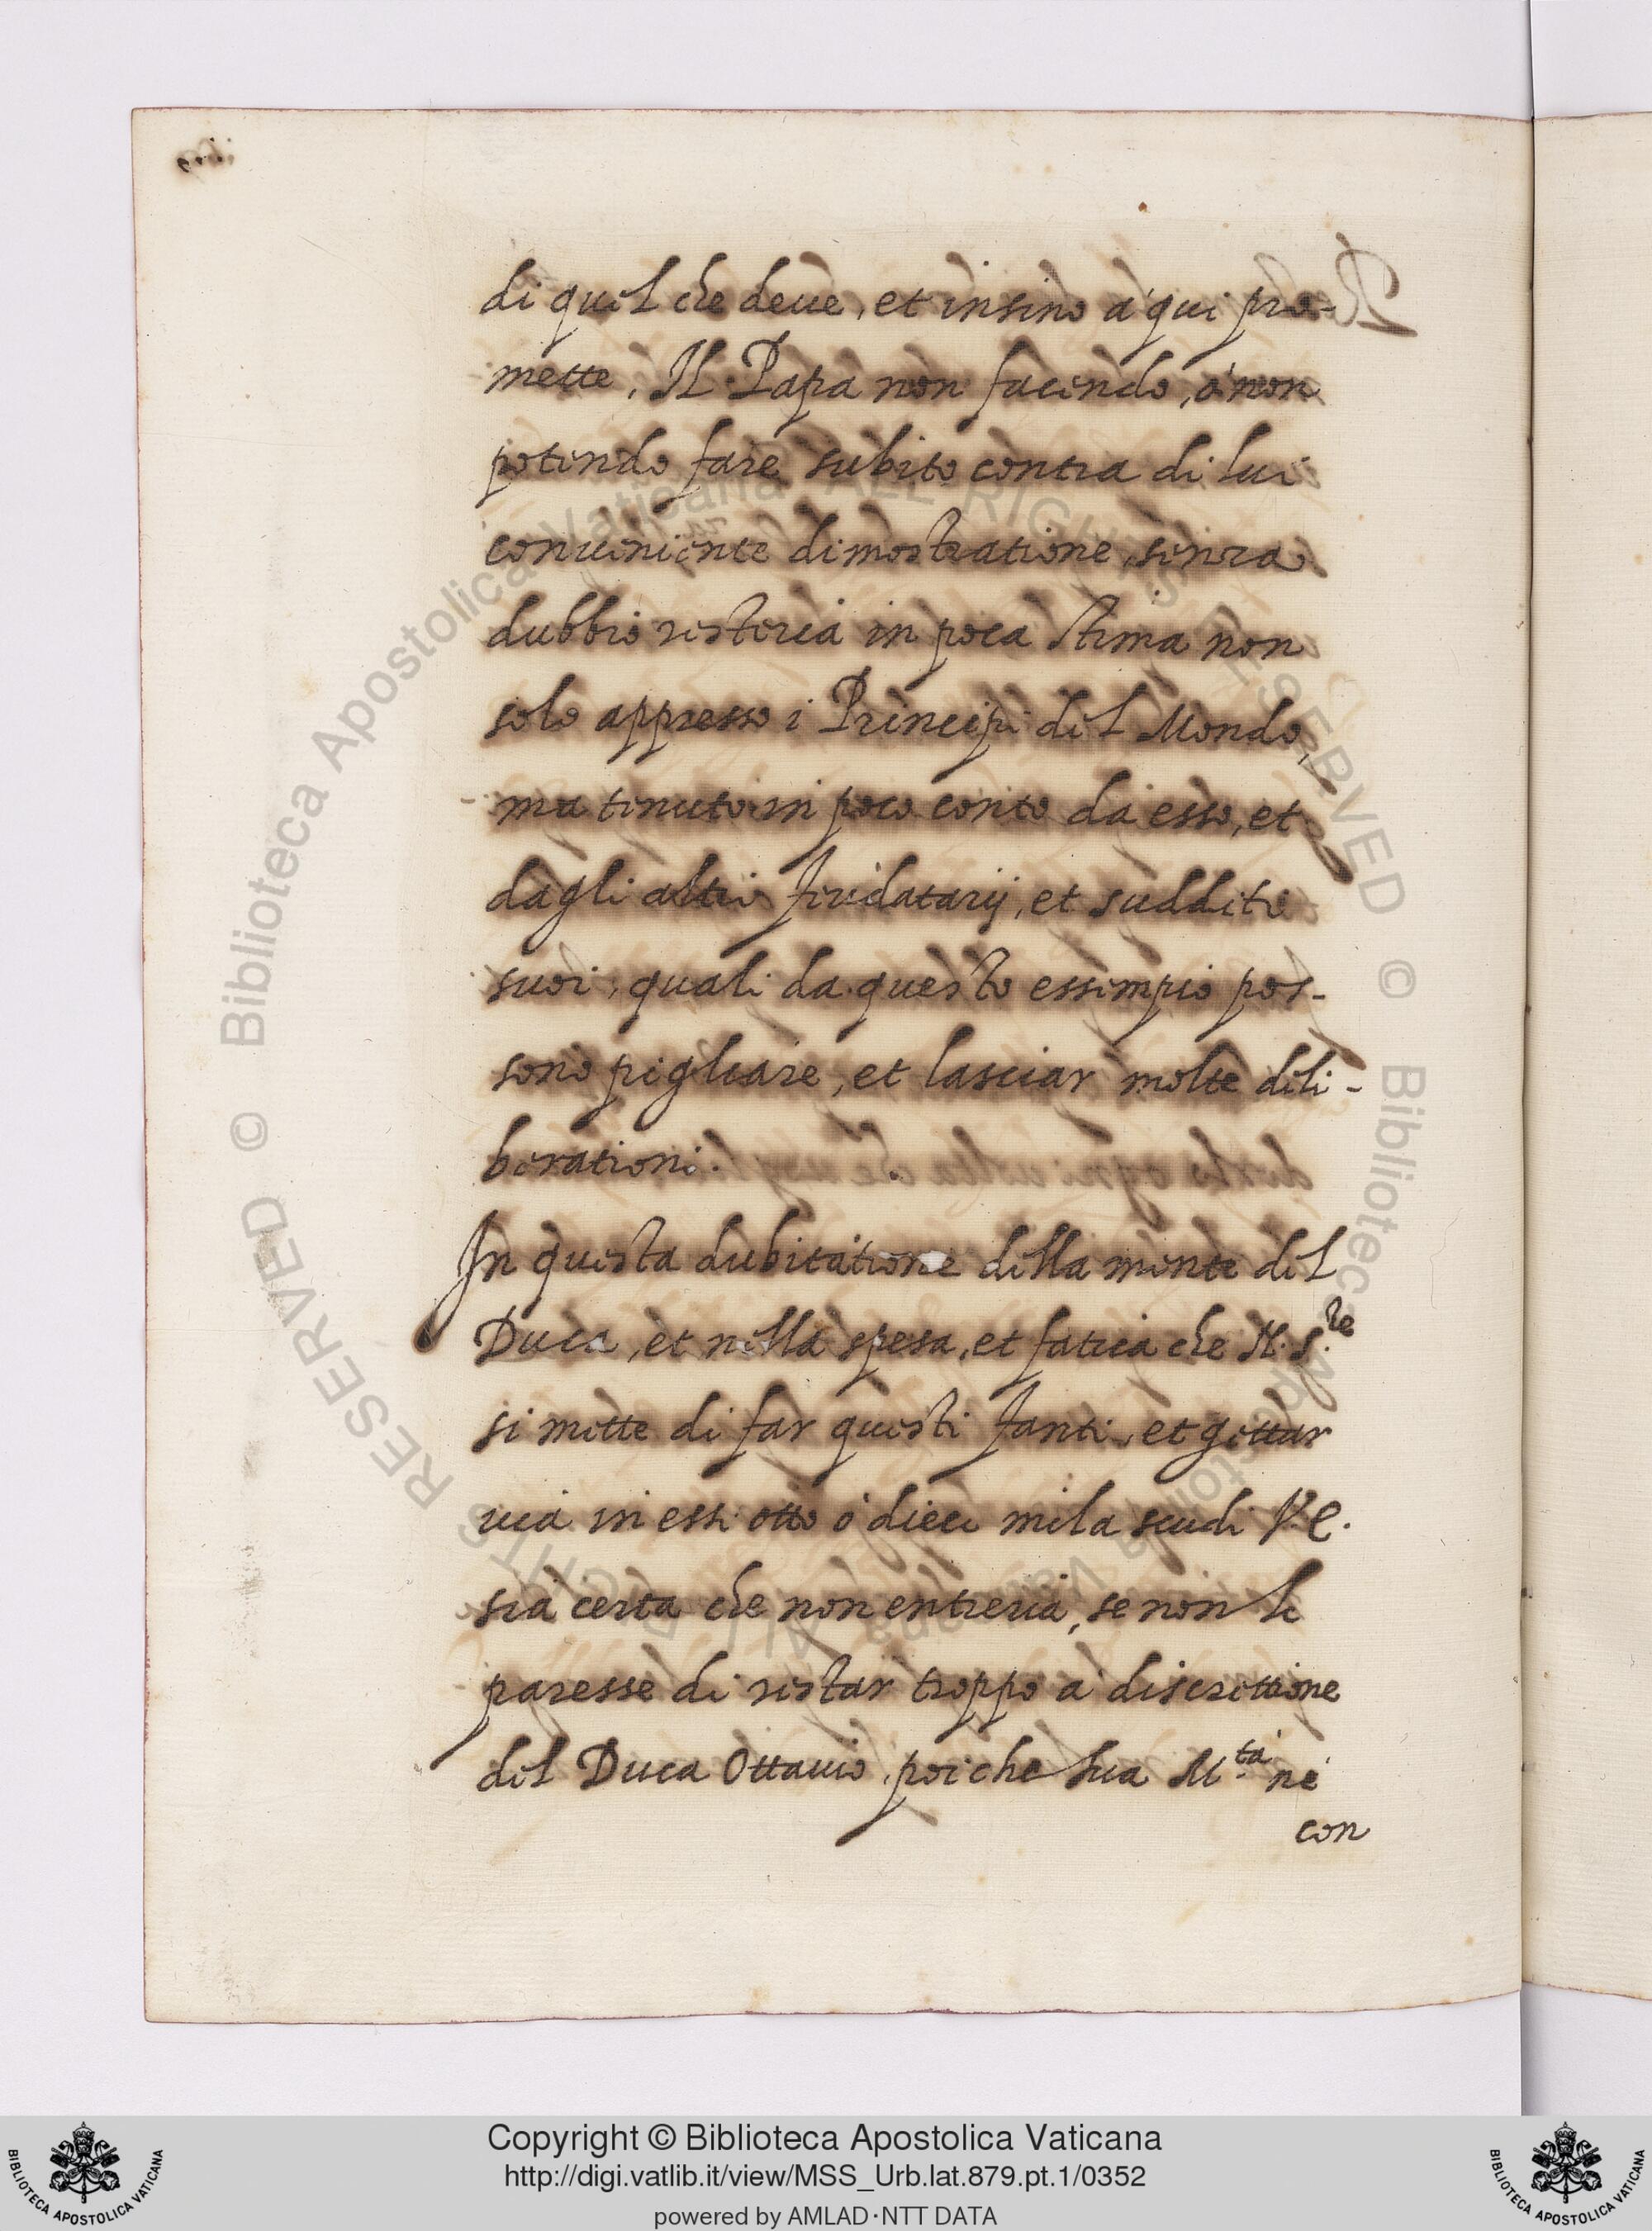 di quel che deue, et insino a' qui pro-
mette. Il Papa non facendo, ò non
potendo fare subito contra di lui
conueniente dimostratione, senza
dubbio resteria in poca stima non
solo appresso i Principi del Mondo,
ma tenuto in poco conto da esso, et
dagli altri feudatarij, et sudditi
suoi, quali da questo essempio pos-
sono pigliare, et lasciar molte deli-
berationi.
In questa dubitatione della mente del
Duca, et nella spesa, et fatica che N. S.re
si mette di far questi fanti, et gettar
uia in essi otto ò dieci mila scudi V. E.
sia certa che non entreria, se non le
paresse di restar troppo à discrettione
del Duca Ottauio, poiche sua M.tà nè
con
Copyright © Biblioteca Apostolica Vaticana
http://digi.vatlib.it/view/MSS_Urb.lat.879.pt.1/0352
powered by AMLAD·NTT DATA
BIBLIOTECA APOSTOLICA VATICANA
BIBLIOTECA APOSTOLICA VATICANA
© Biblioteca Apostolica Vaticana ALL RIGHTS RESERVED
© Biblioteca Apostolica Vaticana ALL RIGHTS RESERVED